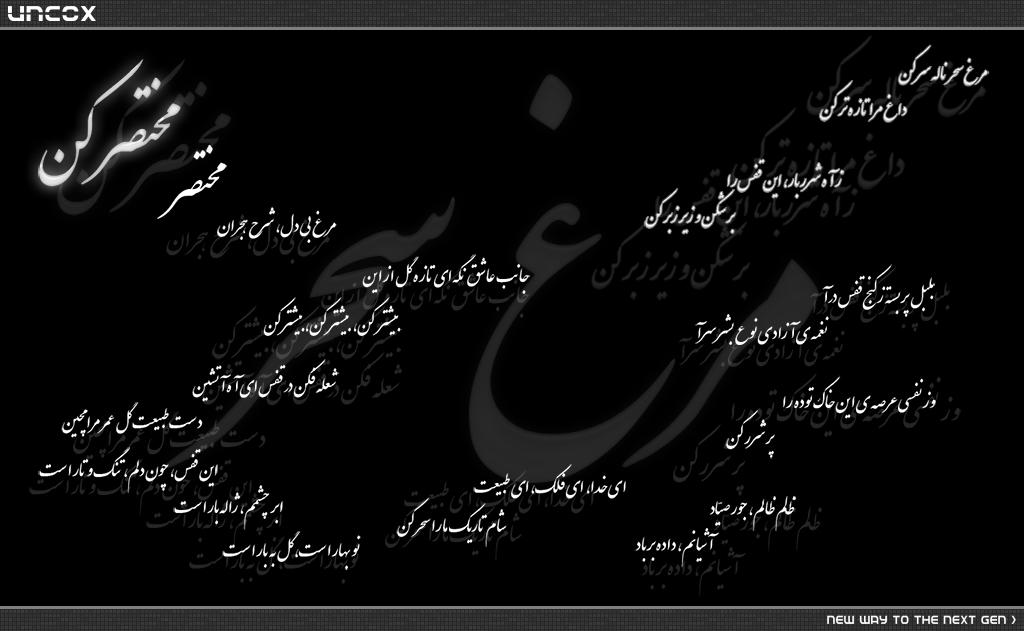 uncox
مرغ سحر
مرغ سحر ناله سر کن
داغ مرا تازه تر کن
زآه شرر بار، این قفس را
بر شکن و زیر زبر کن
بلبل پر بسته ز کنج قفس درآ
نغمه ی آزادی نوع بشر سرآ
وز نفسی عرصه ی این خاک توده را
پر شرر کن
ظلم ظالم، جور صیاد
آشیانم، داده بر باد
ای خدا، ای فلک، ای طبیعت
شام تاریک ما را سحر کن
نو بهار است، گل به بار است
ابر چشمم، ژاله بار است
این قفس، چون دلم، تنگ و تار است
شعله فکن در قفس ای آه آتشین
دست طبیعت گل عمر مرا مچین
جانب عاشق نگه ای تازه گل از این
بیشتر کن، بیشتر کن، بیشتر کن
مرغ بی دل، شرح هجران
مختصر
مختصر کن
NEW WAY TO THE NEXT GEN >